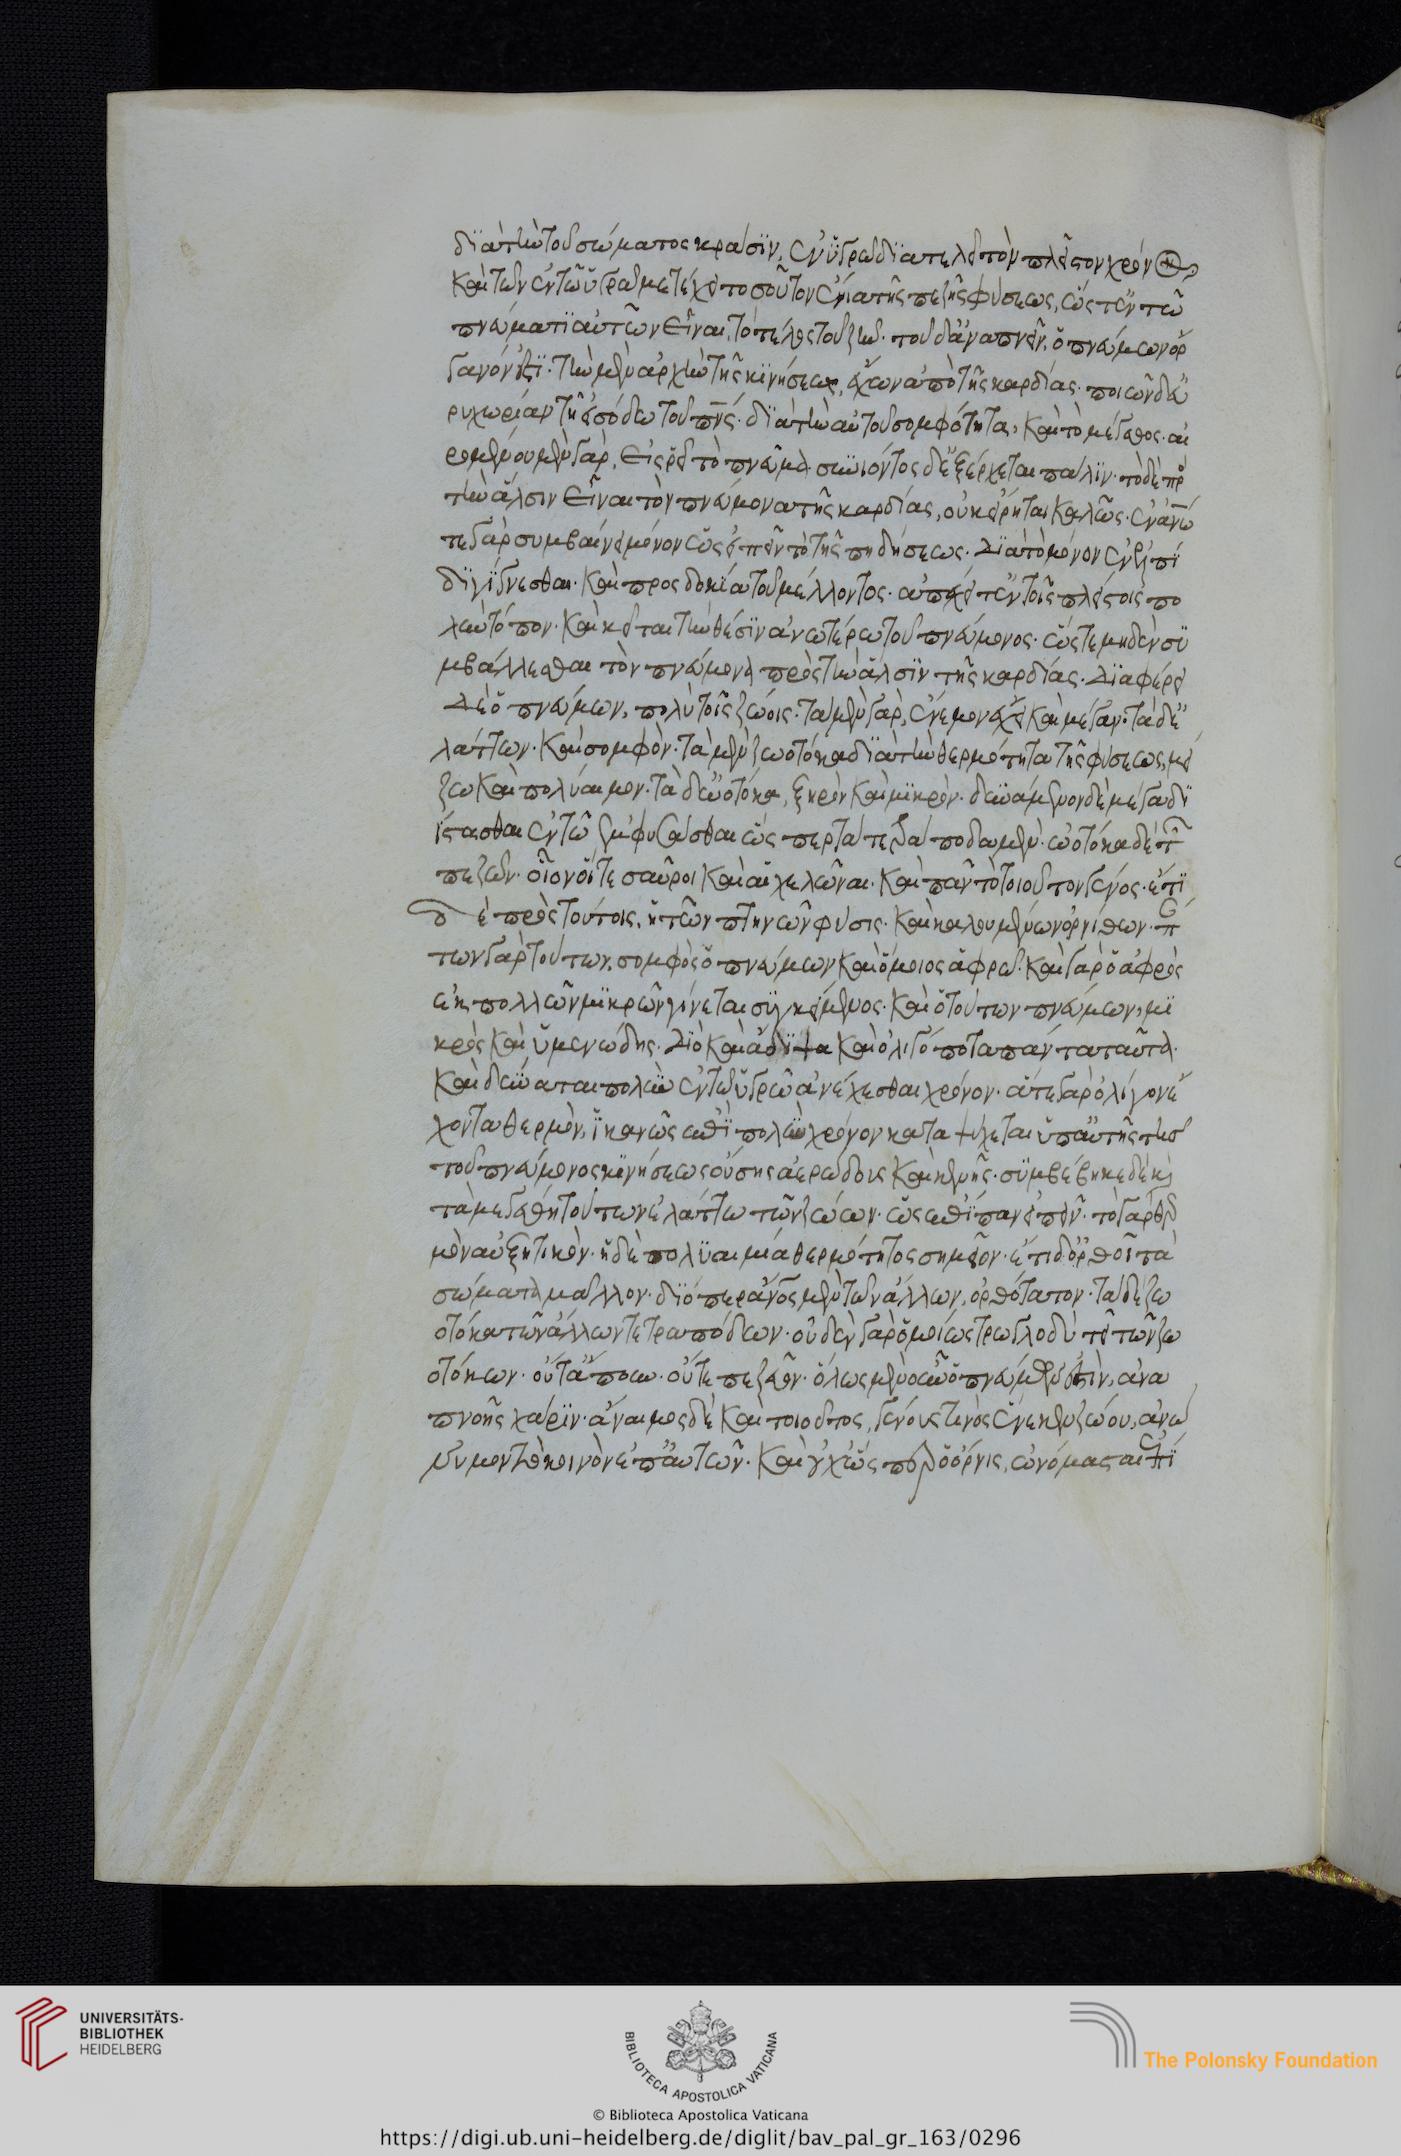 διὰ τὴν τοῦ σώματος κρᾶσιν, ἐν ὑγρῶ διατελεῖ τὸν πλεῖστον χρόνον,
καὶ τῶν ἐν τῶ ὑγρῶ μετέχει τοσοῦτον ἔνια τῆς πεζῆς φύσεως, ὥς τ' ἐν τῶ
πνεύματι αὐτῶν εἶναι, τὸ τέλος τοῦ ζῆν· τοῦ δ' ἀναπνεῖν, ὁ πνεύμων ὄρ
γανόν ἐστι· τὴν μὲν ἀρχὴν τῆς κινήσεως, ἔχων ἀπὸ τῆς καρδίας· ποιῶν δ' εὐ
ρυχωρίαν τῆ εἰσόδω τοῦ πν̅ς· διὰ τὴν αὐτοῦ σομφότητα, καὶ τὸ μέγεθος· αἰ
ρομένου μὲν γὰρ, εἰσρεῖ τὸ πνεῦμα· συνιόντος δ' ἐξέρχεται πάλιν· τὸ δὲ πρὸς
τὴν ἅλσιν εἶναι τὸν πνεύμονα τῆς καρδίας, οὐκ εἴρηται καλῶς· ἐν ἀν̅ω
τε γὰρ συμβαίνει μόνον ὡς εἰπεῖν τὸ τῆς πηδήσεως· διὰ τὸ μόνον ἐν ἐλπί
δι γίγνεσθαι· καὶ προσδοκία τοῦ μέλλοντος· ἀπέχει τ' ἐν τοῖς πλείστοις πο
λὺν τόπον· καὶ κεῖται τὴν θέσιν ἀνωτέρω τοῦ πνεύμονος· ὥστε μηδὲν συ
μβάλλεσθαι τὸν πνεύμονα πρὸς τὴν ἅλσιν τῆς καρδίας. Διαφέρει
δὲ ὁ πνεύμων, πολὺ τοῖς ζώοις· τὰ μὲν γὰρ, ἔναιμον ἔχει καὶ μέγαν· τὰ δ' ἐ
λάττων· καὶ σομφόν· τὰ μὲν ζωοτόκα διὰ τὴν θερμότητα τῆς φύσεως, μεί
ζω καὶ πολύαιμον· τὰ δ' ὠοτόκα, ξηρὸν καὶ μικρὸν· δυνάμενον δὲ μέγα δι
ίστασθαι ἐν τῶ ἐμφυσᾶσθαι ὥσπερ τὰ τετράποδα μὲν· ὠοτόκα δὲ τῶν
πεζῶν· οἷον οἵ τε σαῦροι καὶ αἱ χελῶναι· καὶ πᾶν τὸ τοιοῦτον γένος· ἔτι
δὲ πρὸς τούτοις, ἡ τῶν πτηνῶν φύσις· καὶ καλουμένων ὀρνίθων· πάν
των γὰρ τούτων, σομφὸς ὁ πνεύμων καὶ ὅμοιος ἀφρῶ· καὶ γὰρ ὁ ἀφρὸς
ἐκ πολλῶν μικρῶν γίνεται συγκείμενος· καὶ ὁ τούτων πνεύμων, μι
κρὸς καὶ ὑμενώδης· Διὸ καὶ ἄδιψα καὶ ὀλιγόποτα πάντα ταῦτα·
καὶ δύναται πολὺν ἐν τῶ ὑγρῶ ἀνέχεσθαι χρόνον· ἅτε γὰρ ὀλίγον ἔ
χοντα θερμὸν, ἱκανῶς ἐπὶ πολὺν χρόνον καταψύχεται ὑπ' αὐτῆς τῆς
τοῦ πνεύμονος κινήσεως οὔσης ἀερώδους καὶ κενῆς· συμβέβηκε δὲ καὶ
τὰ μεγέθη τούτων ἐλάττω τῶν ζώων· ὡς ἐπὶ πᾶν εἰπεῖν· τὸ γὰρ θερ
μὸν αὐξητικὸν· ἡ δὲ πολυαιμία θερμότητος σημεῖον· ἔτι δ' ὀρθοῖ τὰ
σώματα μᾶλλον· διόπερ ἄν̅ος μὲν τῶν ἄλλων, ὀρθότατον· τὰ δὲ ζω
οτόκα τῶν ἄλλων τετραπόδων· οὐδὲν γὰρ ὁμοίως τρωγλοδυτεῖ τῶν ζω
οτόκων· οὔτ' ἄπουν· οὔτε πεζεῦον· ὅλως μὲν οὖν ὁ πνεύμων ἐστὶν, ἀνα
πνοῆς χάριν· ἄναιμος δὲ καὶ τοιοῦτος, γένους τινὸς ἕνεκεν ζώου, ἀνώ
νυμον τὸ κοινὸν ἐπ' αὐτῶν· καὶ οὐχ ὥσπερ ὁ ὄρνις, ὠνόμασται ἐπί
UNIVERSITÄTS-
BIBLIOTHEK
HEIDELBERG
BIBLIOTECA APOSTOLICA VATICANA
The Polonsky Foundation
© Biblioteca Apostolica Vaticana
https://digi.ub.uni-heidelberg.de/diglit/bav_pal_gr_163/0296